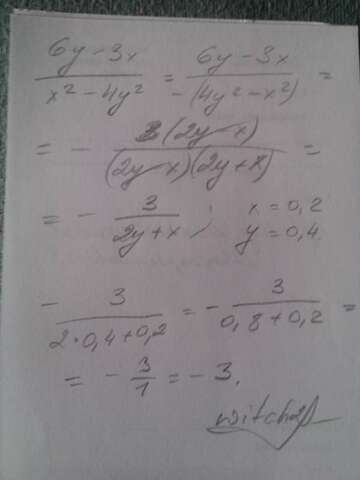 (6y - 3x)/(x² - 4y²) = (6y - 3x)/(-(4y² - x²)) =
= - 3(2y - x)/((2y - x)(2y + x)) =
= - 3/(2y + x) ; x = 0,2
y = 0,4.
- 3/(2·0,4+0,2) = - 3/(0,8+0,2) =
= - 3/1 = - 3.